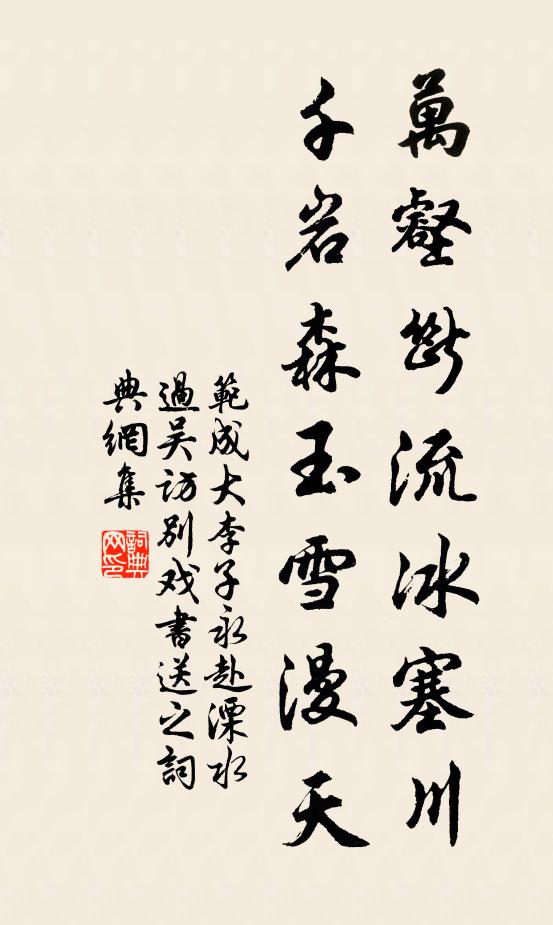 萬壑斷流冰塞川
千岩森玉雪漫天
範成大李子永赴溧水
過吴访别戏書送之詞
典網集
詞典網印